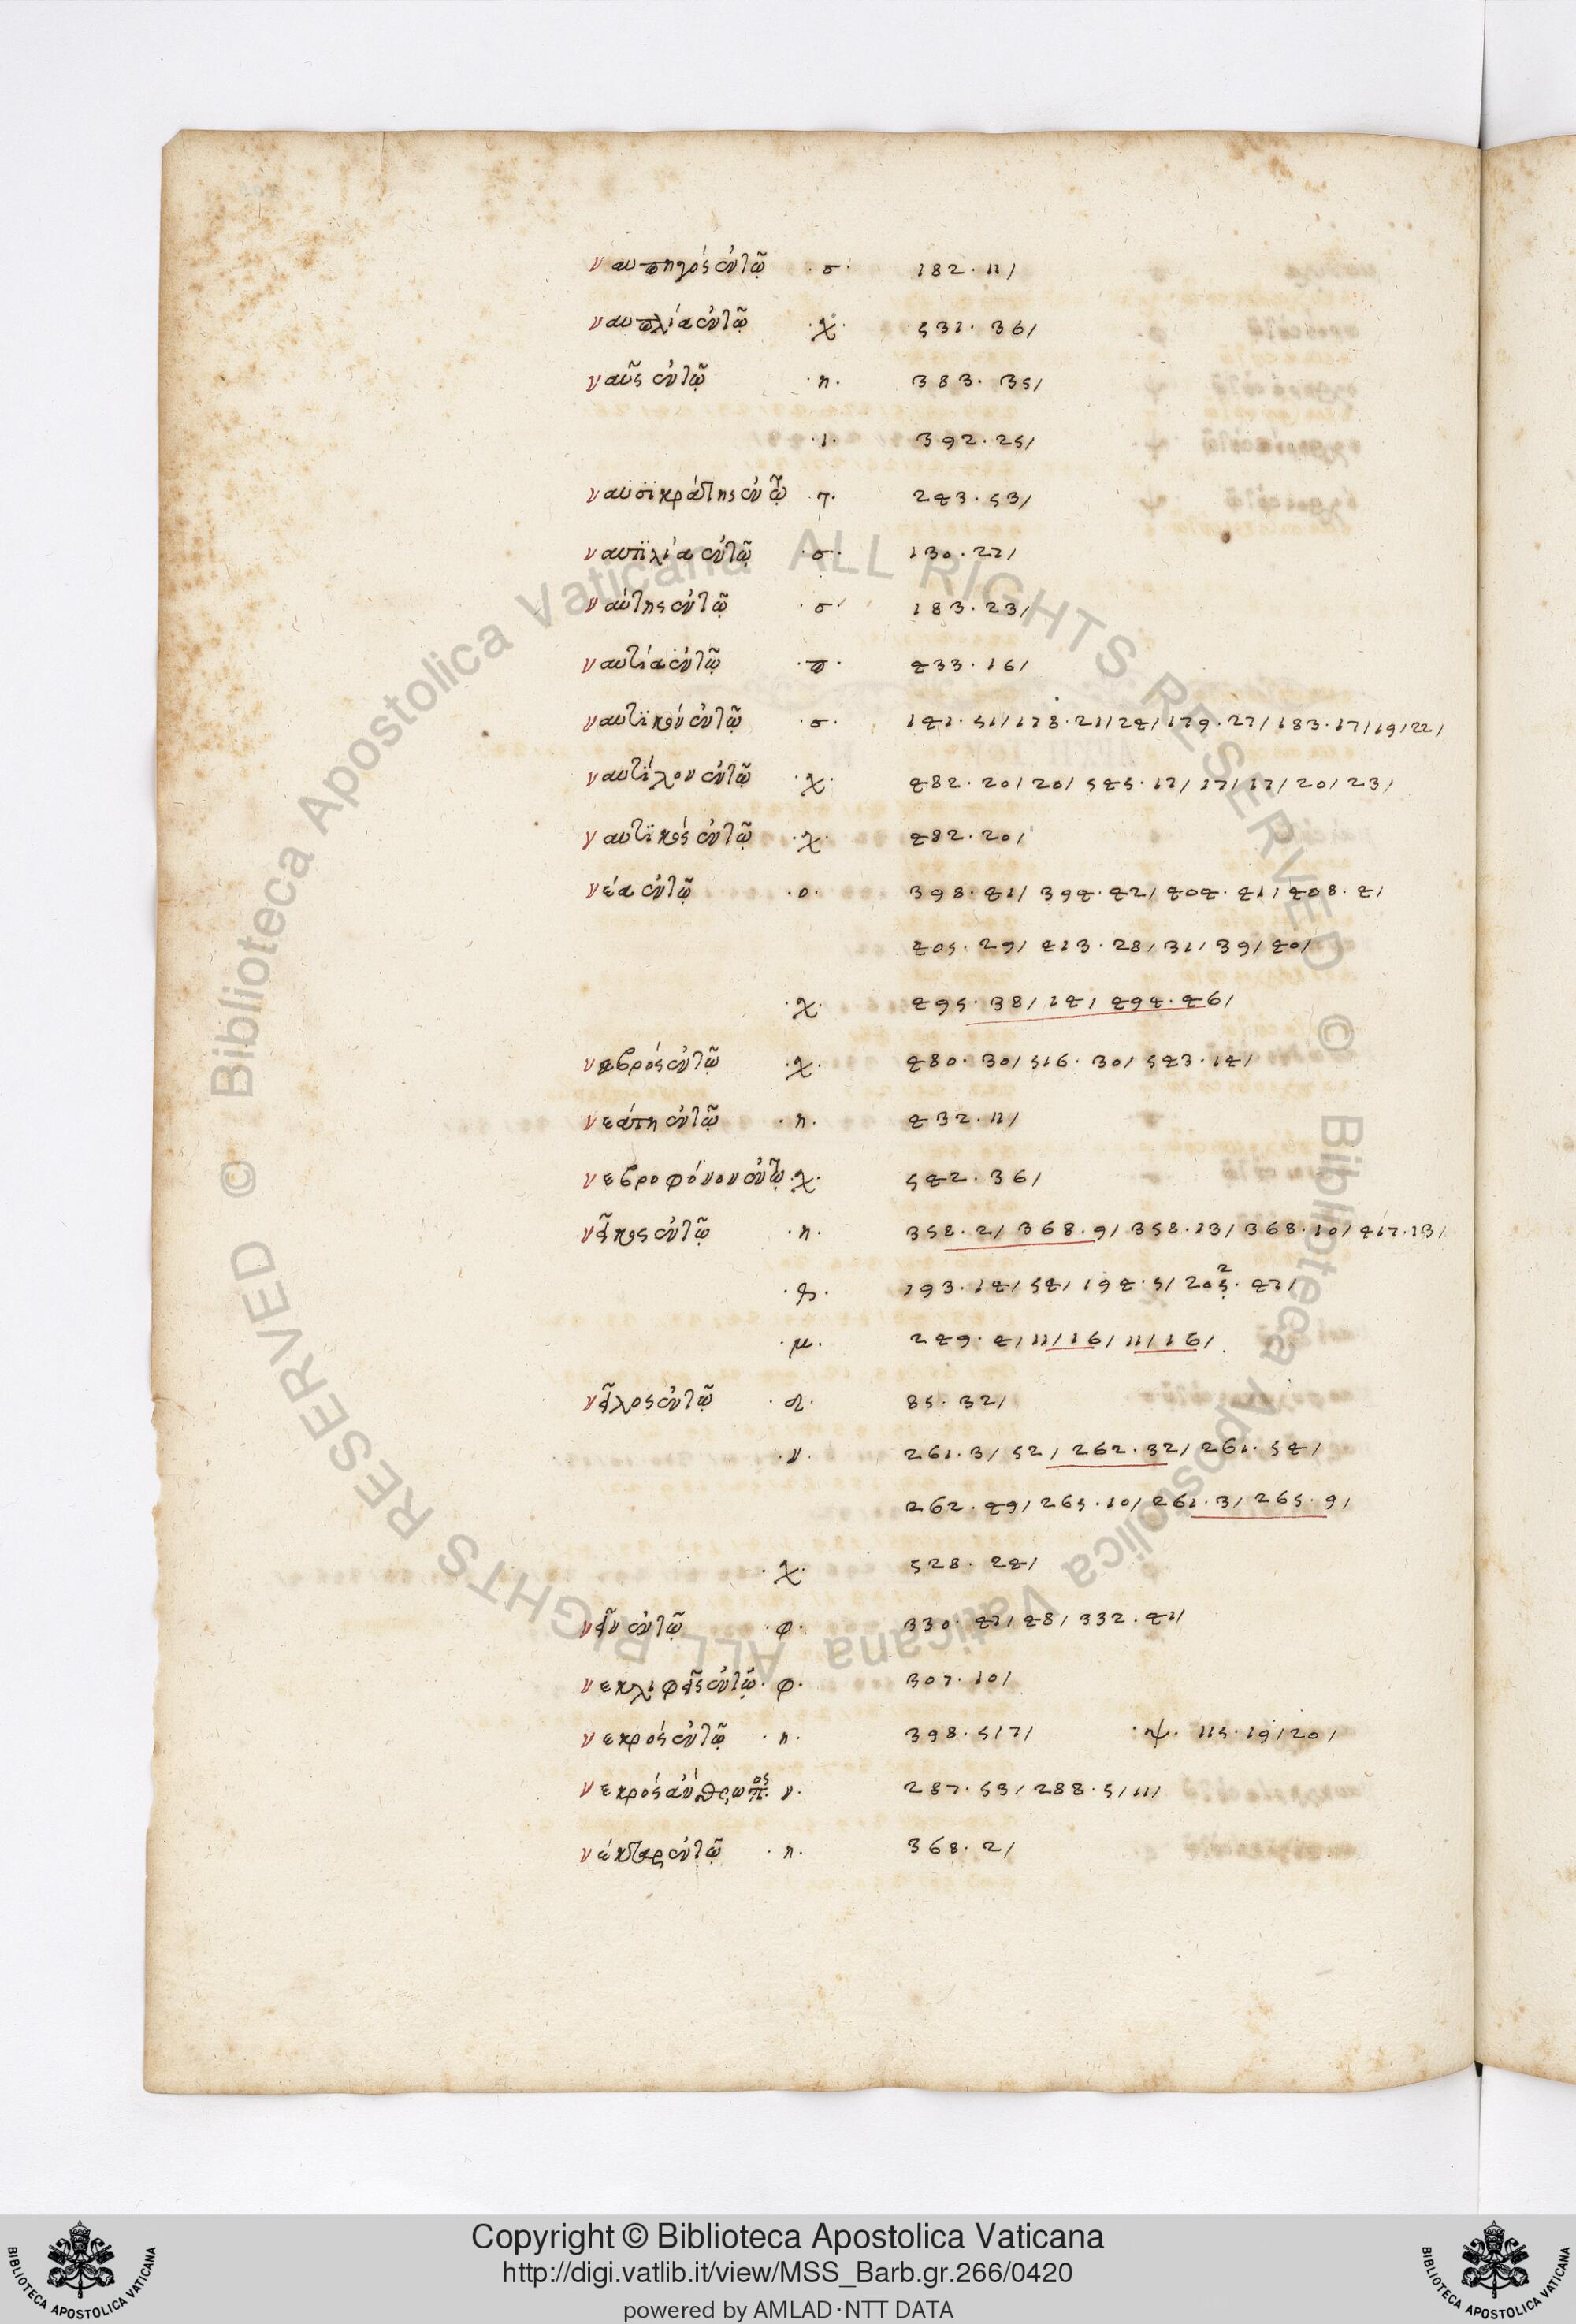 ναυπηγός ἐν τῷ · σ · 182 · 11 /
ναυπλία ἐν τῷ · χ · 531 · 36 /
ναῦς ἐν τῷ · η · 383 · 35 /
· ι · 392 · 25 /
ναυσϊκράτης ἐν τῷ · τ · 243 · 53 /
ναυπλία ἐν τῷ · σ · 130 · 27 /
ναύτης ἐν τῷ · σ · 183 · 23 /
ναυτία ἐν τῷ · π · 433 · 16 /
ναυτϊκόν ἐν τῷ · σ · 141 · 51 / 178 · 21 / 24 / 179 · 27 / 183 · 17 / 19 / 22 /
ναυτίλον ἐν τῷ · χ · 482 · 20 / 20 / 545 · 17 / 17 / 17 / 20 / 23 /
ναυτϊκός ἐν τῷ · χ · 482 · 20 /
νέα ἐν τῷ · ο · 398 · 41 / 394 · 42 / 404 · 41 / 408 · 4 /
405 · 29 / 413 · 28 / 31 / 39 / 40 /
· χ · 495 · 38 / 14 / 494 · 46 /
νεβρός ἐν τῷ · χ · 480 · 30 / 516 · 30 / 543 · 14 /
νεάπη ἐν τῷ · η · 432 · 11 /
νεβροφόνον ἐν τῷ · χ · 542 · 36 /
νεῖκος ἐν τῷ · η · 358 · 2 / 368 · 9 / 358 · 13 / 368 · 10 / 417 · 13 /
193 · 14 / 54 / 194 · 5 / 205 · 47 /
· μ · 249 · 4 / 11 / 16 / 11 / 16 /
νεῖλος ἐν τῷ · δ · 85 · 32 /
· ν · 261 · 3 / 52 / 262 · 32 / 261 · 54 /
262 · 49 / 265 · 10 / 261 · 3 / 265 · 9 /
· χ · 528 · 24 /
νεῖν ἐν τῷ · φ · 330 · 47 / 48 / 332 · 41 /
νεκλιφεῖς ἐν τῷ · φ · 307 · 10 /
νεκρός ἐν τῷ · η · 398 · 5 / 7 / · ψ · 115 · 19 / 20 /
νεκρός ἄνθρωπος · ν · 287 · 53 / 288 · 5 / 11 /
νέκταρ ἐν τῷ · η · 368 · 2 /
© Biblioteca Apostolica Vaticana ALL RIGHTS RESERVED © Biblioteca Apostolica Vaticana ALL RIGHTS RESERVED
Copyright © Biblioteca Apostolica Vaticana
http://digi.vatlib.it/view/MSS_Barb.gr.266/0420
powered by AMLAD·NTT DATA
BIBLIOTECA APOSTOLICA VATICANA
BIBLIOTECA APOSTOLICA VATICANA